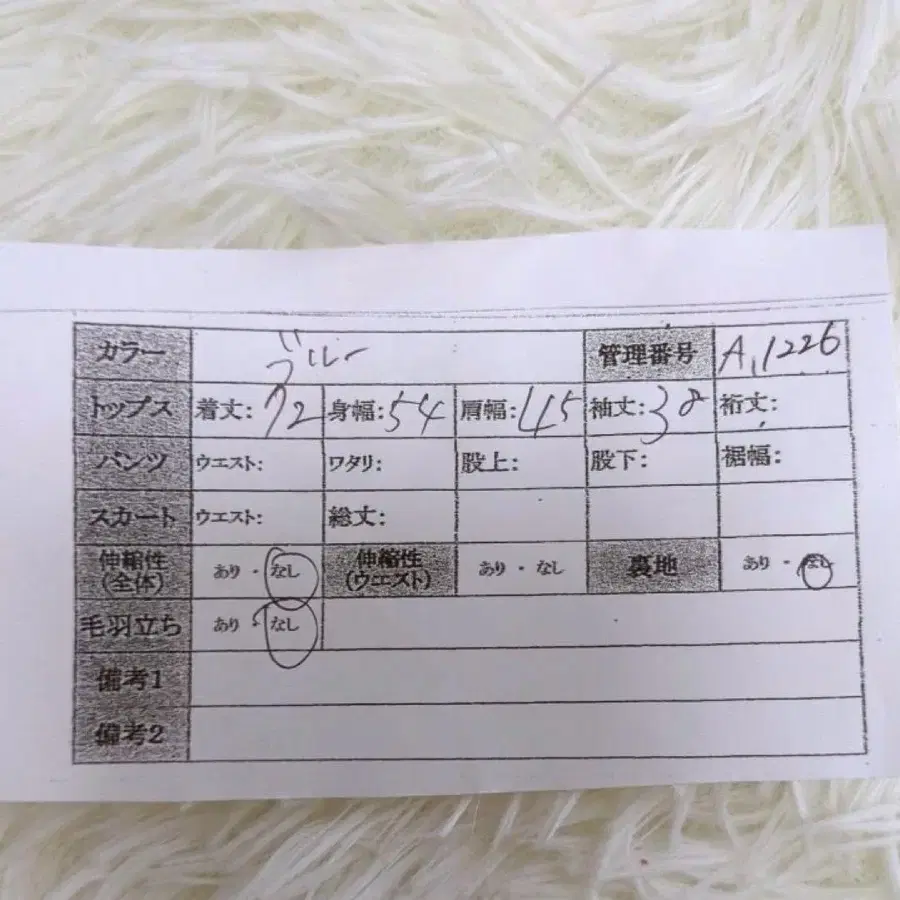 カラー ブルー 管理番号 A,1226
トップス 着丈:72 身幅:54 肩幅:45 袖丈:38 裄丈:
パンツ ウエスト: ワタリ: 股上: 股下: 裾幅:
スカート ウエスト: 総丈:
伸縮性(全体) あり・なし 伸縮性(ウエスト) あり・なし 裏地 あり・なし
毛羽立ち あり・なし
備考1
備考2